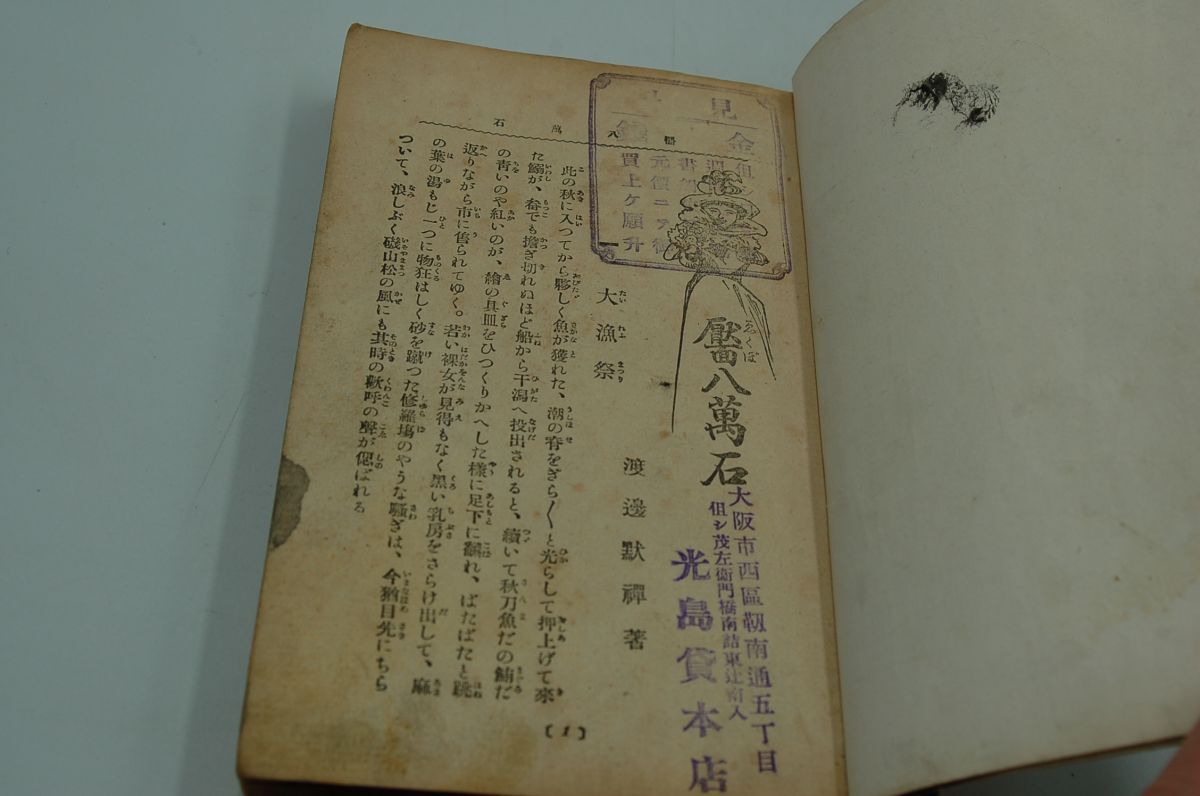 靨八萬石
渡邊默禪著
大漁祭
此の秋に入つてから夥しく魚が獲れた、潮の脊をぎら〳〵と光らして押上げて來
た鰯が、畚でも擔ぎ切れぬほど船から干潟へ投出されると、續いて秋刀魚だの鮪だ
の靑いのや紅いのが、繪の具皿をひつくりかへした樣に足下に溢れ、ばたばたと跳
返りながら市に售られてゆく。若い裸女が見得もなく黑い乳房をさらけ出して、麻
の葉の湯もじ一つに物狂はしく砂を蹴つた修羅塲のやうな騷ぎは、今猶目先にちら
ついて、浪しぶく磯山松の風にも其時の歡呼の聲が偲ばれる
〔1〕
八萬石
見
金
元價ニテ
買上ケ願升
大阪市西區靱南通五丁目
但シ茂左衞門橋南詰東辻南入
光島貸本店